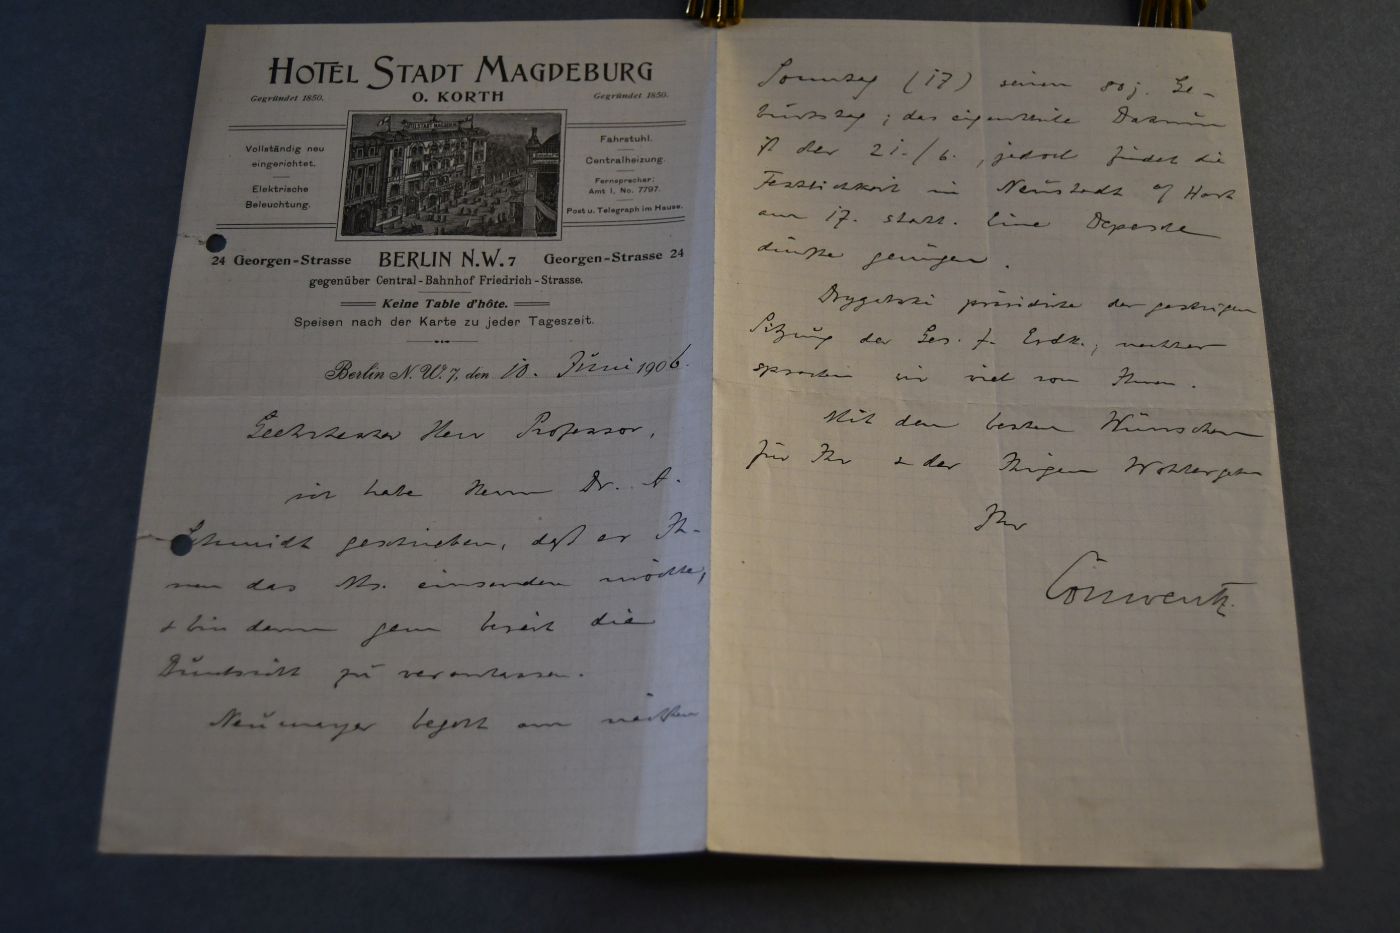 HOTEL STADT MAGDEBURG
Gegründet 1850.
O. KORTH
Gegründet 1850.
Vollständig neu
eingerichtet.
Elektrische
Beleuchtung.
Fahrstuhl.
Centralheizung.
Fernsprecher:
Amt I, No. 7797.
Post u. Telegraph im Hause.
24 Georgen-Strasse BERLIN N.W. 7 Georgen-Strasse 24
gegenüber Central-Bahnhof Friedrich-Strasse.
Keine Table d'hôte.
Speisen nach der Karte zu jeder Tageszeit.
Berlin N.W. 7, den 10. Juni 1906.
Geehrtester Herr Professor,
ich habe Herrn Dr. A.
Schmidt geschrieben, daß er Ih-
nen das Ms. einsenden möchte,
& bin dann gern bereit die
Durchsicht zu veranlassen.
Neumayer begeht am nächsten
Sonntag (17) seinen 80 j. Ge-
burtstag; das eigentliche Datum
ist der 21./6., jedoch findet die
Festlichkeit in Neustadt a/ Hardt
am 17. statt. Eine Depesche
dürfte genügen.
Drygalski präsidirte der gestrigen
Sitzung der Ges. f. Erdk.; nachher
sprachen wir viel von Ihnen.
Mit den besten Wünschen
für Ihr & der Ihrigen Wohlergehen
Ihr
Conwentz.